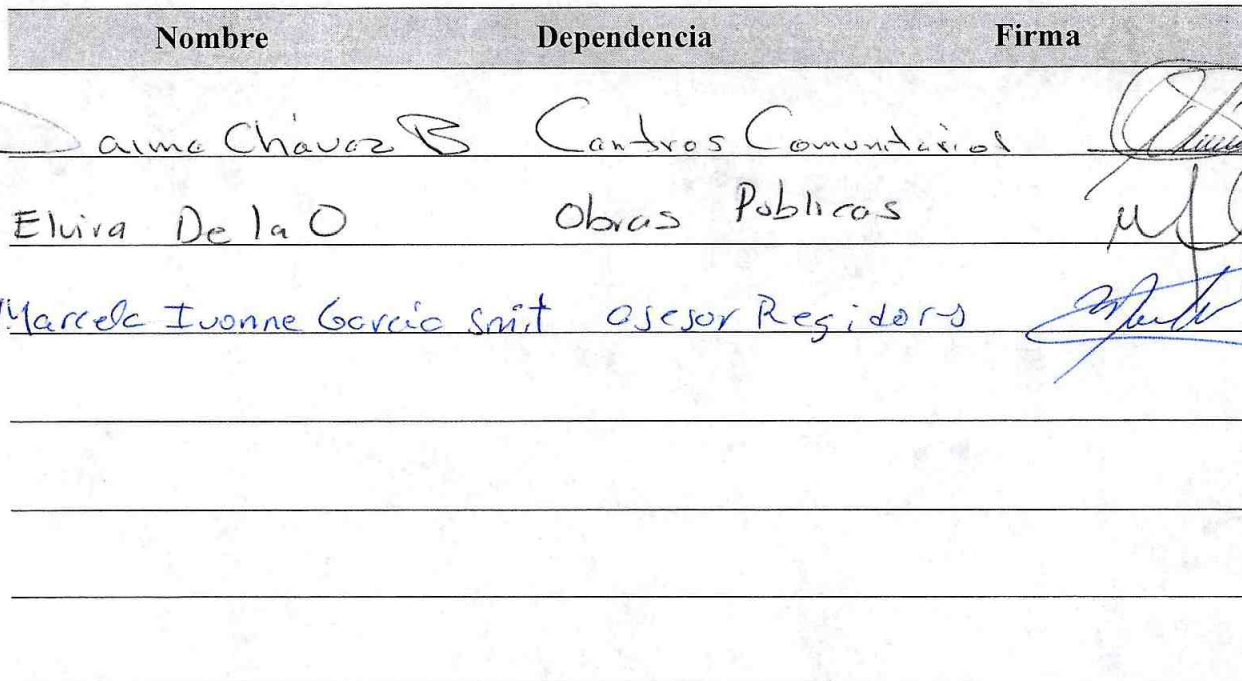 Nombre Dependencia Firma
Jaime Chávez B Centros Comunitarios
Elvira De la O Obras Publicas
Marcela Ivonne García Smit asesor Regidors